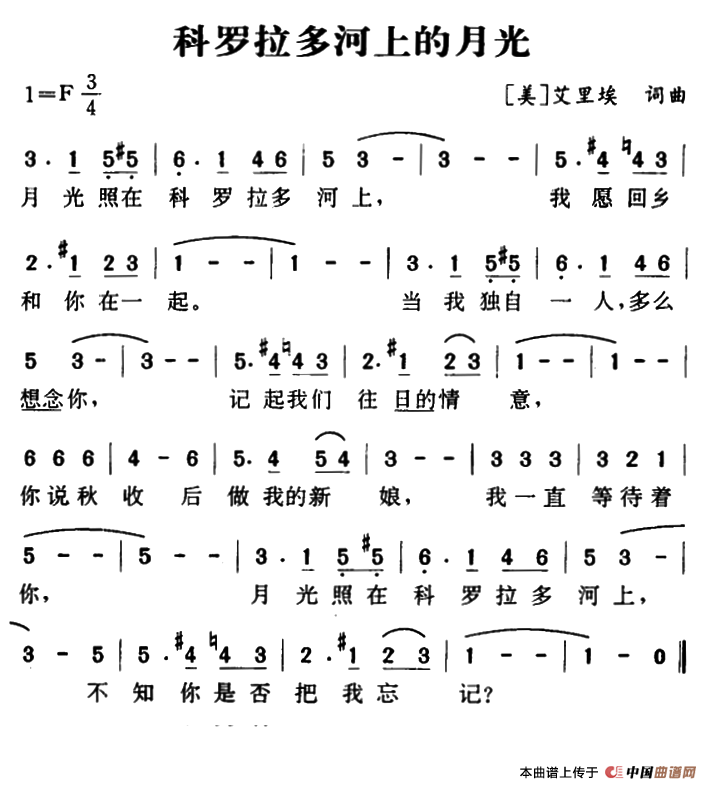 科罗拉多河上的月光
1=F 3/4 [美]艾里埃 词曲
3· 1 5 #5 | 6· 1 4 6 | 5 3 - | 3 - - | 5· #4 ♮4 3 |
月 光 照在 科 罗 拉多 河 上, 我 愿 回乡
2· #1 2 3 | 1 - - | 1 - - | 3· 1 5 #5 | 6· 1 4 6 |
和 你 在一 起。 当 我 独自 一 人,多么
5 3 - | 3 - - | 5· #4 ♮4 3 | 2· #1 2 3 | 1 - - | 1 - - |
想念你, 记 起我们 往 日的情 意,
6 6 6 | 4 - 6 | 5· 4 5 4 | 3 - - | 3 3 3 | 3 2 1 |
你说秋 收 后 做 我的新 娘, 我一直 等待着
5 - - | 5 - - | 3· 1 5 #5 | 6· 1 4 6 | 5 3 - |
你, 月 光 照 在 科 罗 拉 多 河 上,
3 - 5 | 5· #4 ♮4 3 | 2· #1 2 3 | 1 - - | 1 - 0 ‖
不 知 你 是 否 把 我 忘 记?
本曲谱上传于 中国曲谱网